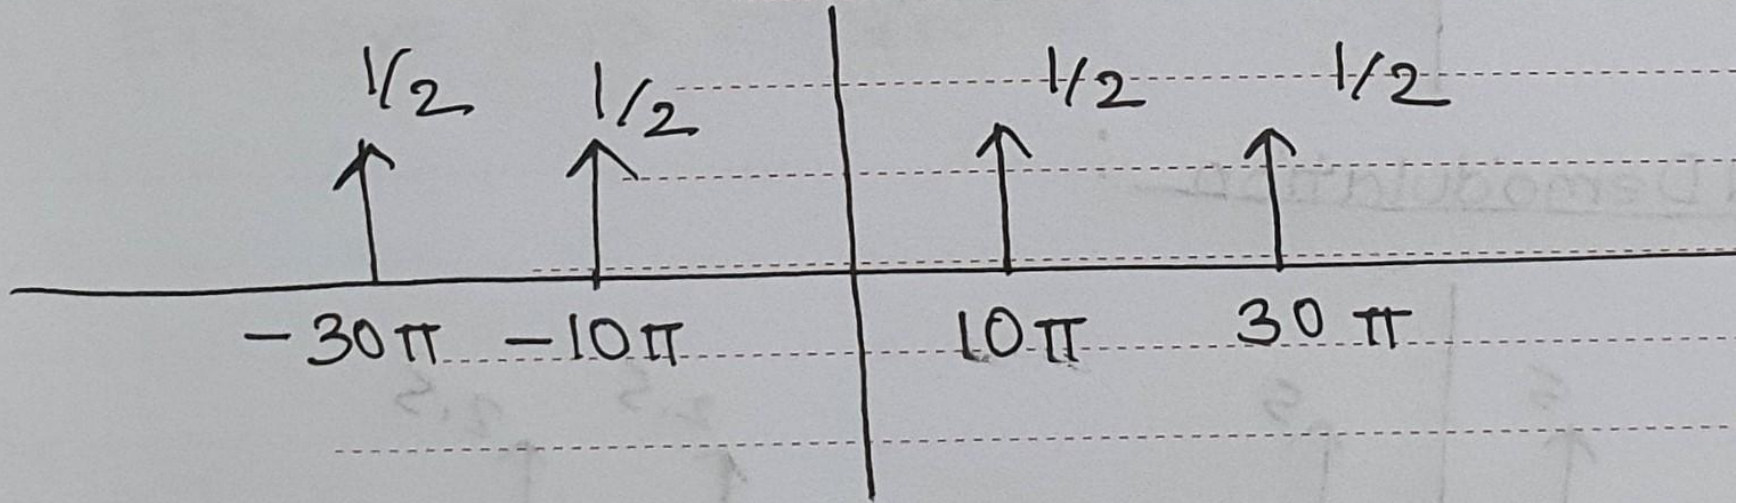 1/2 1/2 1/2 1/2
-30π -10π 10π 30π